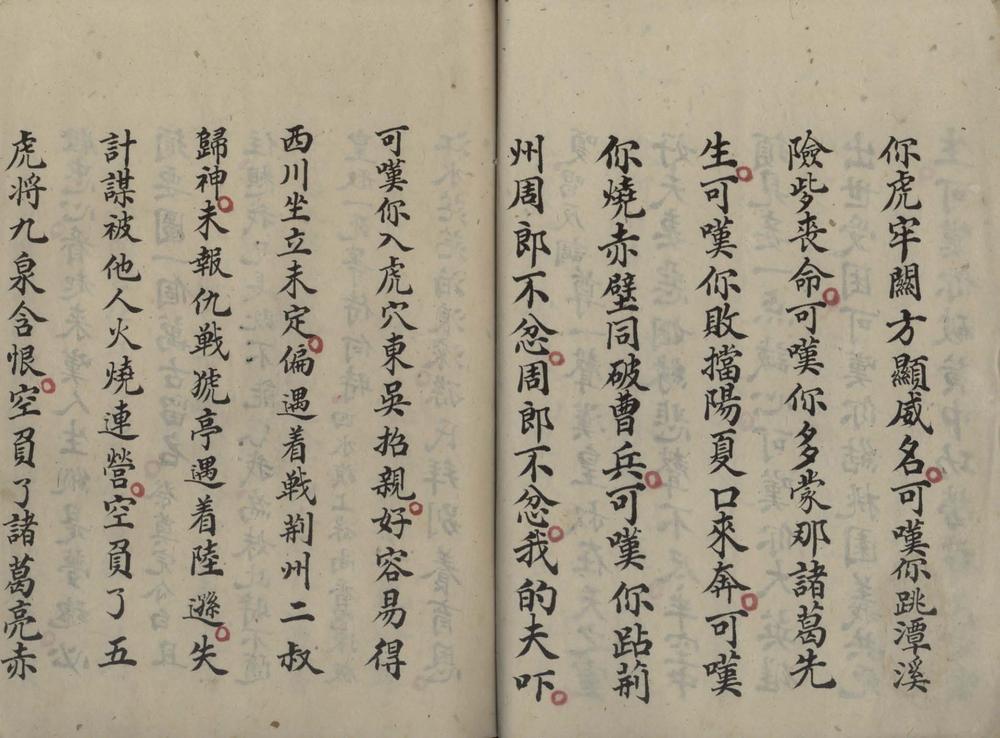 你虎牢關方顯威名可嘆你跳潭溪
險些喪命可嘆你多蒙那諸葛先
生可嘆你敗擋陽夏口來奔可嘆
你燒赤壁同破曹兵可嘆你跕荊
州周郎不忿周郎不忿我的夫吓
可嘆你入虎穴東吳招親好容易得
西川坐立未定偏遇着戰荊州二叔
歸神未報仇戰猇亭遇着陸遜失
計謀被他人火燒連營空負了五
虎将九泉含恨空負了諸葛亮赤